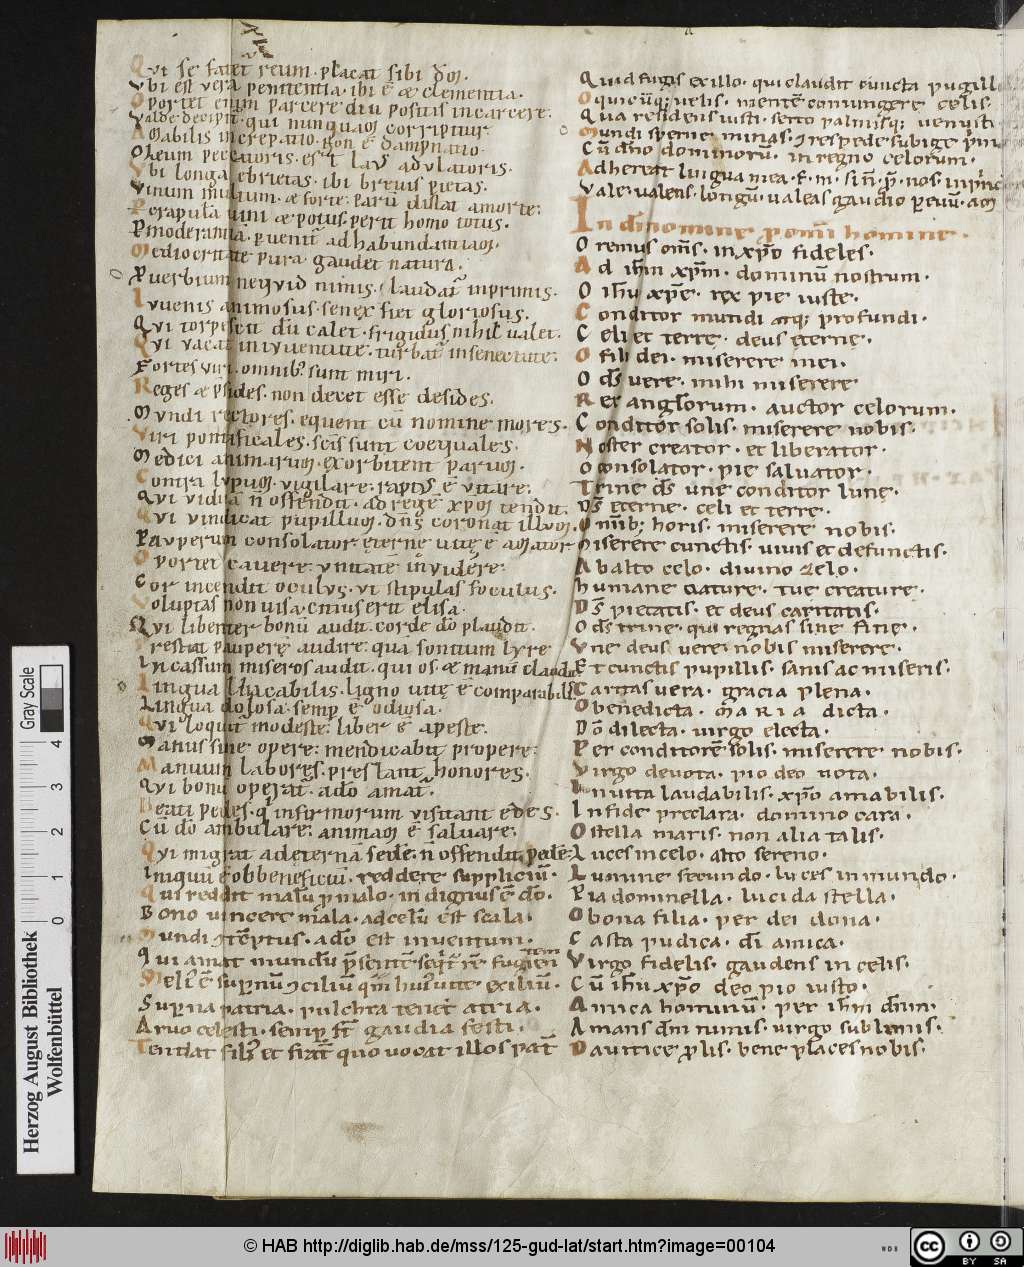 Qui se fatet reum. placat sibi dm̄.
Vbi est vera penitentia. ibi ē æ clementia.
Oportet enim parcere diu positis incarcere.
Valde decipit. qui nunquam corripitur.
Amabilis increpatio. non ē dampnatio.
Oleum peccatoris. est laus adulatoris.
Vbi longa ebrietas. ibi brevis pietas.
Vinum multum. æ forte: parū distat amorte:
Percrapula vini æ potus. perit homo totus.
Moderamina. pervenit ad habundantiam.
Mediocritate pura. gaudet natura.
Pverbium nequid nimis. laudat inprimis.
Ivvenis animosus. senex fiet gloriosus.
Qvi torpescit dū calet. frigidus nihil valet.
Qvi vacat in ivventute. turbat in senectute:
Fortes viri. omnibꝰ sunt miri.
Reges æ psides. non decet esse desides.
Mvndi rectores. equent cū nomine mores.
Viri pontificales. scīs sunt coequales.
Medici animarum. exorbitent parum.
Contra lvpum. vigilare: raptvs ē vitare:
Qvi viduā n̄ offendit. ad regē xpm tendit.
Qvi vindicat pupillum. dn̄s coronat illum.
Pavperum consolator. ęternę vitę ē amator
Oportet cavere: vnitatē invidere:
Cor incendit ocvlvs. vt stipulas focvlus.
Voluptas non visa. cnius erit elisa.
Qvi libenter bonū audit. corde dō plaudit.
Prestat pavperę audire: qua sonitum lyre
In cassum miseros audit. qui os. æ manū claudit
Lingua placabilis. ligno vitę ē comparabilis
Lingua dolosa. semp ē odiosa.
Qvi loquit modeste: liber ē apeste.
Manus sine opere: mendicabit propere:
Manuum labores. prestant honores.
Qvi bonū operat. a dō amat.
Beati pedes. q infirmorum visitant edes.
Cū dō ambulare: animam ē salvare:
Qvi migrat ad eternā sedē. n̄ offendit pedē.
Iniquū ē ob beneficiū. reddere suppliciū.
Quis reddit malū p malo. in dignius ē dō.
Bono vincere mala. ad celū est scala.
Mundi cōtēptus. a dō est inventum.
Qui amat mundū psentē. seqr̄ rē fugientem
Meliꝰ ē supnū ɔciliū qm̄ huiꝰ vite exiliū.
Supna patria. pulchra tenet atria.
Arvo celesti. semp st̄ gaudia festi.
Tendat filiꝰ et frat quo vocat illos pat
Quid fugis ex illo. qui claudit cuncta pugillo
O quicūqꝫ velis. mentē coniungere celis.
Qua residens iusti. serto palmisqꝫ venusti
Mundi sperne minas.
Cū dn̄o dominorū. in regno celorum.
Adhereat lingua mea. f. m. si n̄. p. nos. in
Vale. valens. longū. valeas gaudio p evū. am
In dn̄i nomine p omī homine.
Oremus om̄s. in xpo fideles.
Ad ih̄m xpm. dominū nostrum.
O ih̄u xpe. rex pie iuste.
Conditor mundi atqꝫ profundi.
Celi et terrę. deus ęternę.
O fili dei. miserere mei.
O ds̄ vere. mihi miserere
Rex anglorum. auctor celorum.
Conditor solis. miserere nobis.
Noster creator. et liberator.
O consolator. pie salvator.
Trine ds̄ une conditor lunę.
Ds̄ ęterne. celi et terre.
Omībꝫ horis. miserere nobis.
Miserere cunctis. vivis et defunctis.
Ab alto celo. divino zelo.
Humane nature. tue creature.
Ds̄ pietatis. et deus caritatis.
O ds̄ trine. qui regnas sine fine.
Vne deus vere: nobis miserere.
Et cunctis pupillis. sanis ac miseris.
Caritas vera. gracia plena.
O benedicta. MARIA dicta.
Dō dilecta. virgo electa.
Per conditorē solis. miserere nobis.
Virgo devota. pio deo vota.
Invita laudabilis. xpo amabilis.
In fide preclara. domino cara.
O stella maris. non alia talis.
Luces in celo. alto sereno.
Lumine secundo. luces in mundo.
Pia dominella. lucida stella.
O bona filia. per dei dona.
Casta pudica. dī amica.
Virgo fidelis. gaudens in celis.
Cū ih̄u xpo deo pio iusto.
Amica hominū. per ih̄m dn̄m.
Amans dm̄ nimis. virgo sublimis.
Davitice plis. bene places nobis.
Gray Scale
4 3 2 1 0
Herzog August Bibliothek
Wolfenbüttel
© HAB http://diglib.hab.de/mss/125-gud-lat/start.htm?image=00104
WDB
cc BY SA